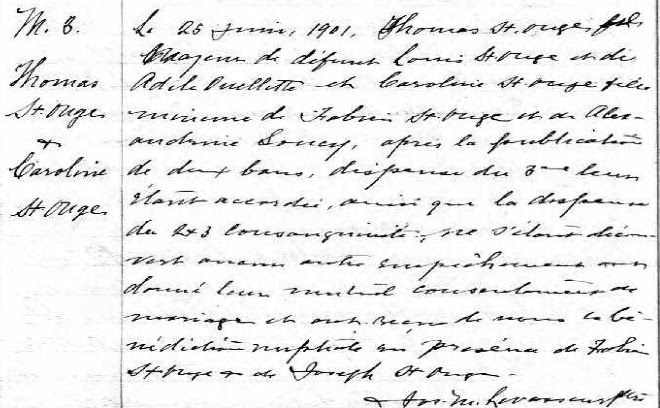 M. 3.
Thomas
St Onge
+
Caroline
St Onge
Le 25 juin, 1901, Thomas St Onge fils
Majeur de défunt Louis St Onge et de
Adèle Ouellette et Caroline St Onge fille
mineure de Fabien St Onge et de Alex-
andrine Soucy, après la publication
de deux bans, dispense du 3me leur
étant accordée, ainsi que la dispense
du 2x3 consanguinité, ne s'étant décou-
vert aucun autre empêchement ont
donné leur mutuel consentement de
mariage et ont reçu de nous la bé-
nédiction nuptiale en présence de Fabien
St Onge & de Joseph St Onge.
Jos. M. Levasseur ptre